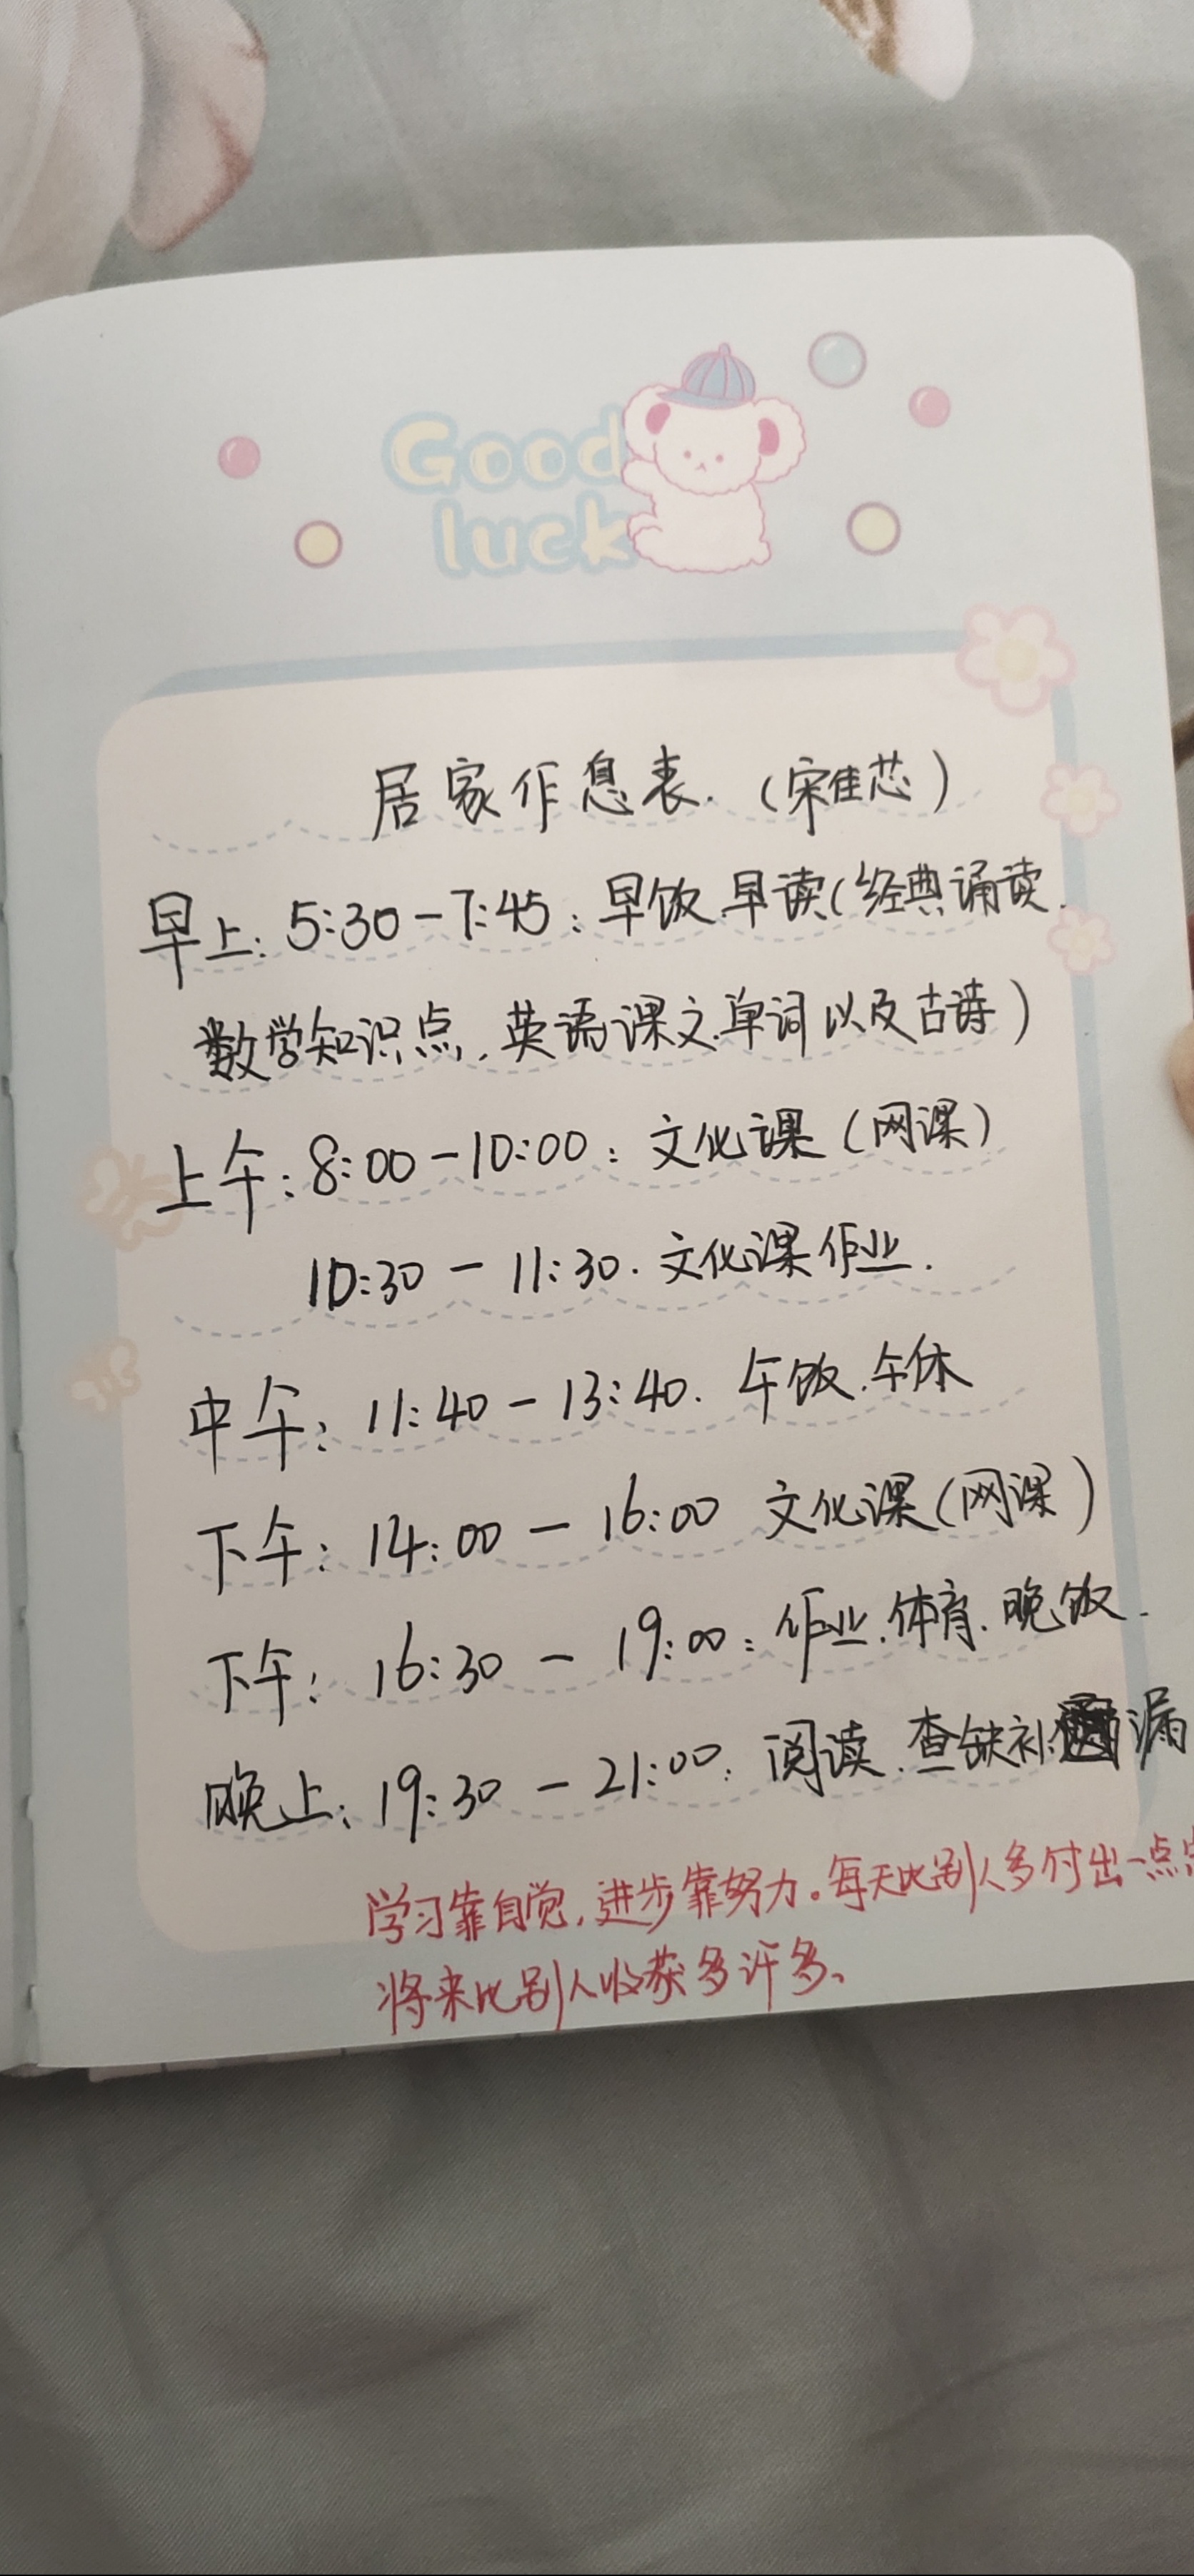 Good
luck
居家作息表.（宋佳芯）
早上: 5:30-7:45: 早饭.早读(经典诵读.
数学知识点.英语课文.单词以及古诗)
上午: 8:00-10:00: 文化课(网课)
10:30-11:30.文化课作业.
中午: 11:40-13:40. 午饭.午休
下午: 14:00-16:00 文化课(网课)
下午: 16:30-19:00: 作业.体育.晚饭.
晚上: 19:30-21:00: 阅读.查缺补漏
学习靠自觉,进步靠努力。每天比别人多付出一点
将来比别人收获多许多、